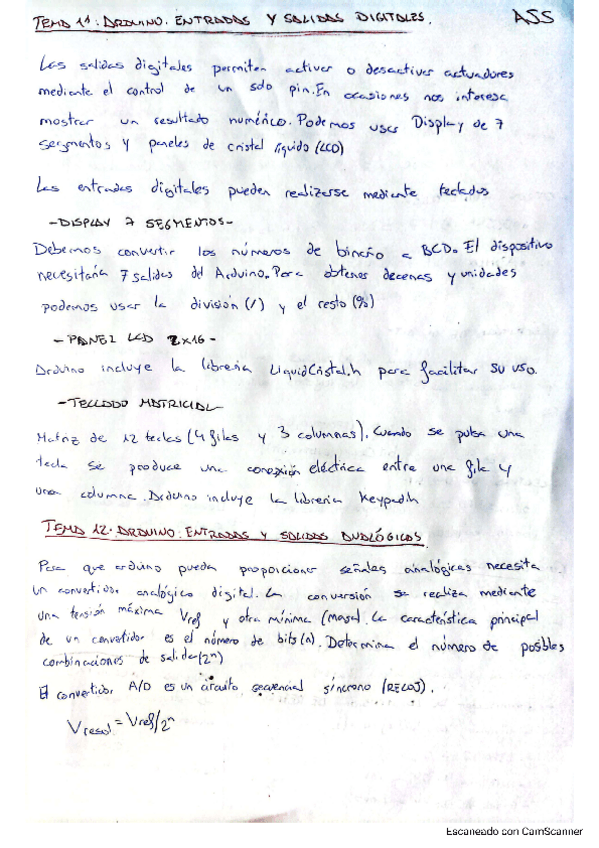 TEMA 11: ARDUINO. ENTRADAS Y SALIDAS DIGITALES. ASS
Las salidas digitales permiten activar o desactivar actuadores
mediante el control de un solo pin. En ocasiones nos interesa
mostrar un resultado numérico. Podemos usar Display de 7
segmentos y paneles de cristal líquido (LCD)
Las entradas digitales pueden realizarse mediante teclados
-DISPLAY 7 SEGMENTOS-
Debemos convertir los números de binario a BCD. El dispositivo
necesitaría 7 salidas del Arduino. Para obtener decenas y unidades
podemos usar la división (/) y el resto (%)
- PANEL LCD 2x16 -
Arduino incluye la librería LiquidCristal.h para facilitar su uso.
-TECLADO MATRICIAL
Matriz de 12 teclas (4 filas y 3 columnas). Cuando se pulsa una
tecla se produce una conexión eléctrica entre una fila y
una columna. Arduino incluye la librería Keypad.h
TEMA 12: ARDUINO: ENTRADAS Y SALIDAS ANALÓGICAS.
Para que arduino pueda proporcionar señales analógicas necesita
un convertidor analógico digital. La conversión se realiza mediante
una tensión máxima Vref y otra mínima (masa). La característica principal
de un convertidor es el número de bits (n). Determina el número de posibles
combinaciones de salida (2ⁿ)
El convertidor A/D es un circuito secuencial síncrono (RELOJ).
Vresol = Vref/2ⁿ
Escaneado con CamScanner